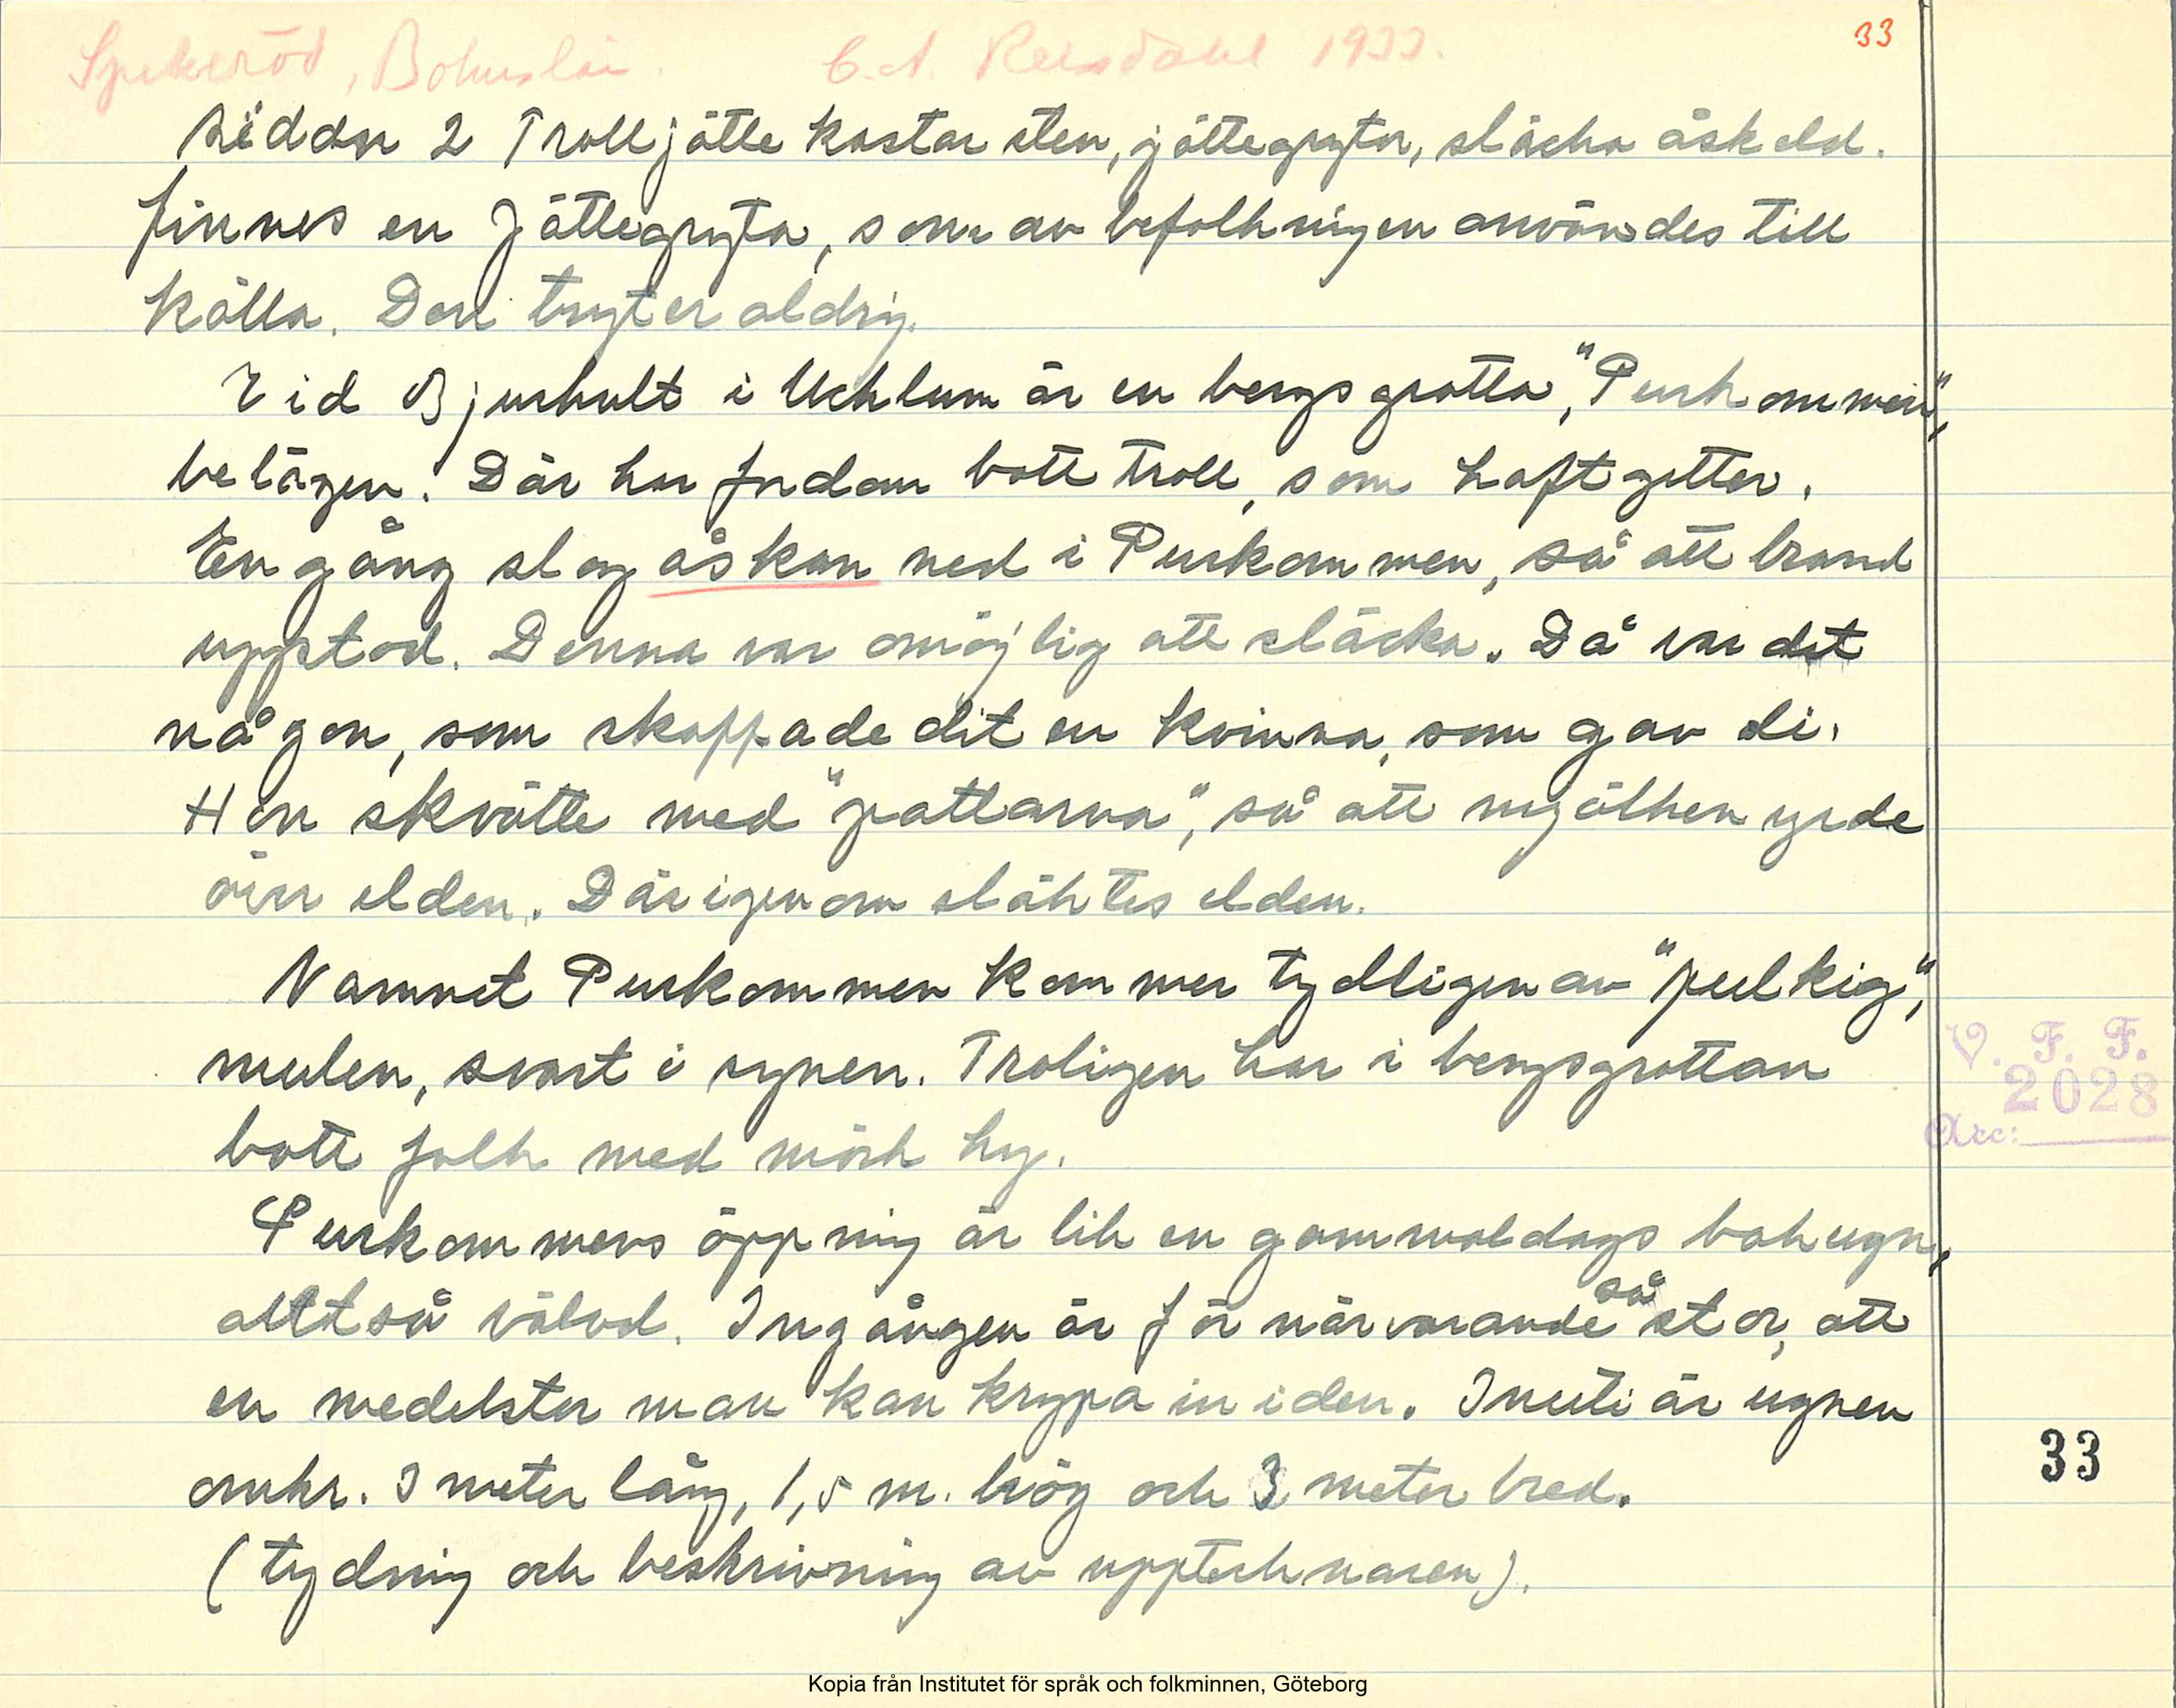 Spekeröd, Bohuslän. C. A. 1933.
33
sidan 2 Trolljätte kastar sten, jättegryta, släcka åskeld.
finnes en Jättegryta, som av befolkningen användes till
källa. Den tryter aldrig.
Vid Bjurhult i Ucklum är en bergsgrotta, "Purkammen",
belägen. Där har fordom bott troll, som haft getter.
En gång slog åskan ned i Purkammen, så att brand
uppstod. Denna var omöjlig att släcka. Då var det
någon, som skaffade dit en kvinna, som gav di.
Hon skvätte med "pattarna", så att mjölken yrde
över elden. Därigenom släktes elden.
Namnet Purkammen kommer tydligen av "pulkig",
mulen, svart i synen. Troligen har i bergsgrottan
bott folk med mörk hy.
Purkammens öppning är lik en gammaldags bakugn,
alltså välvd. Ingången är för närvarande så stor, att
en medelstor man kan krypa in i den. Inuti är ugnen
omkr. 3 meter lång, 1,5 m. hög och 3 meter bred.
(tydning och beskrivning av upptecknaren).
V. F. F.
2028
Acc:
33
Kopia från Institutet för språk och folkminnen, Göteborg